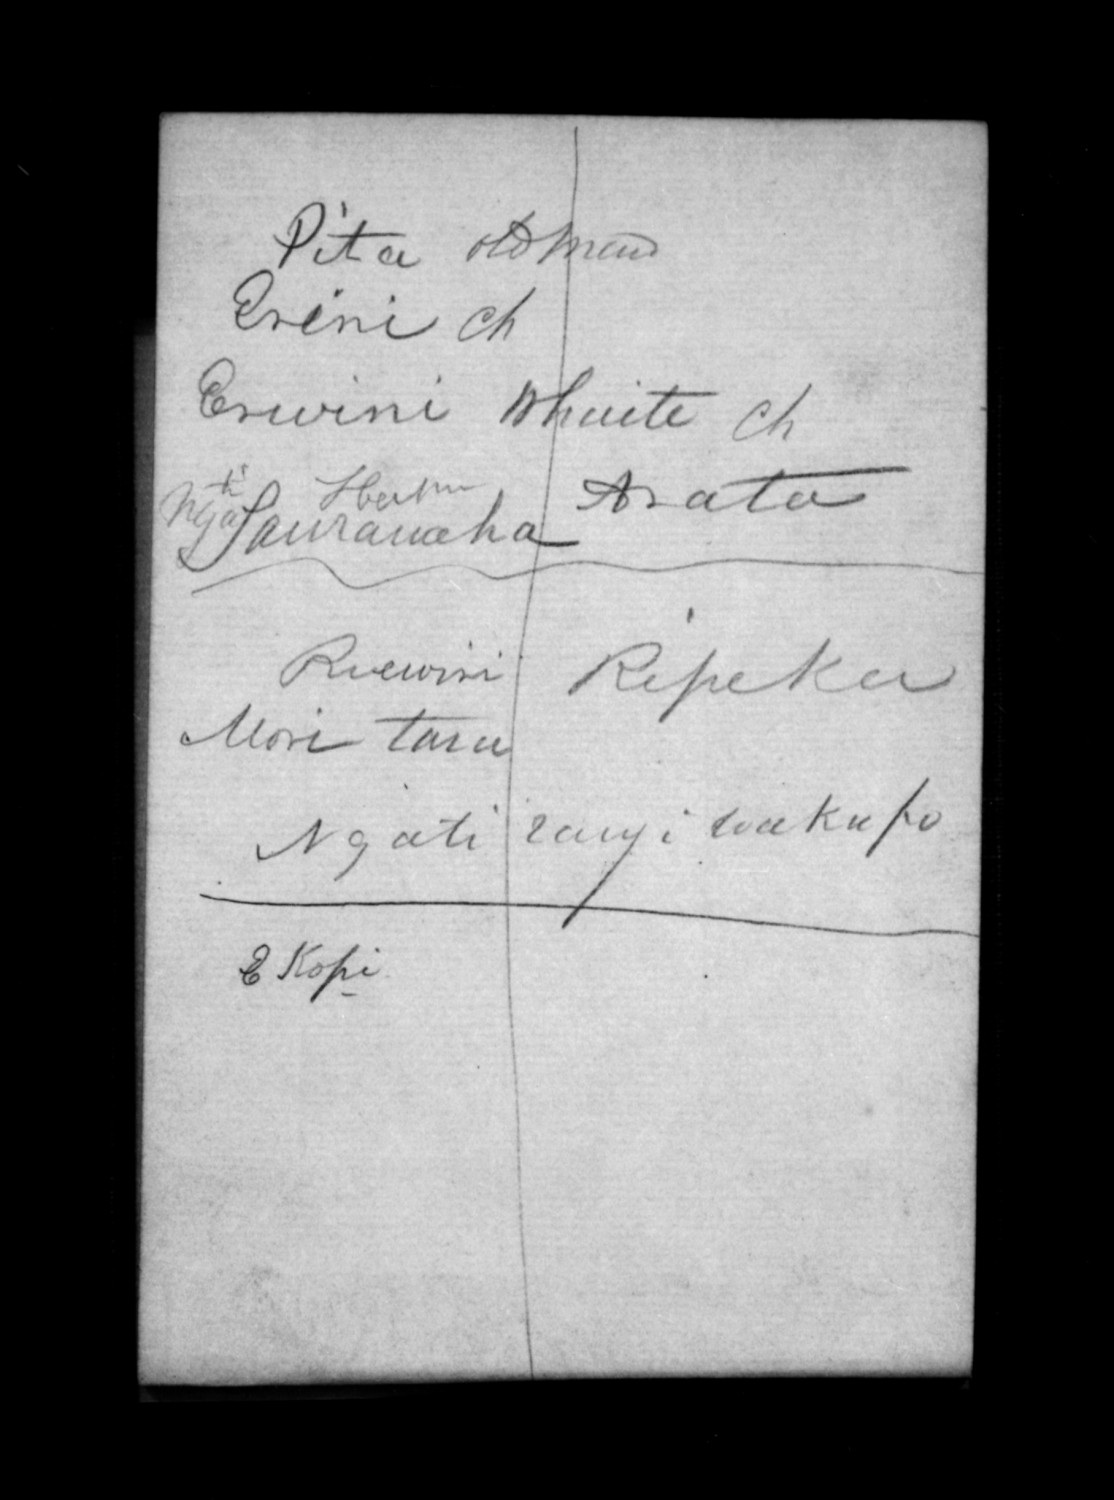 Pita old man
Erini ch
Erwini Whaite ch
Ngati Taurauaha Arata
Ruewini Ripeka
Mori taru
Ngati rangi wakupo
E Kopi